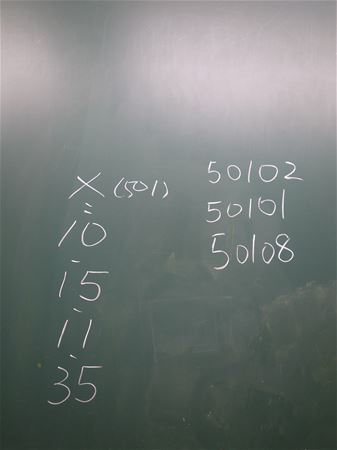 X (501)
:
10
.
15
.
11
.
35
50102
50101
50108